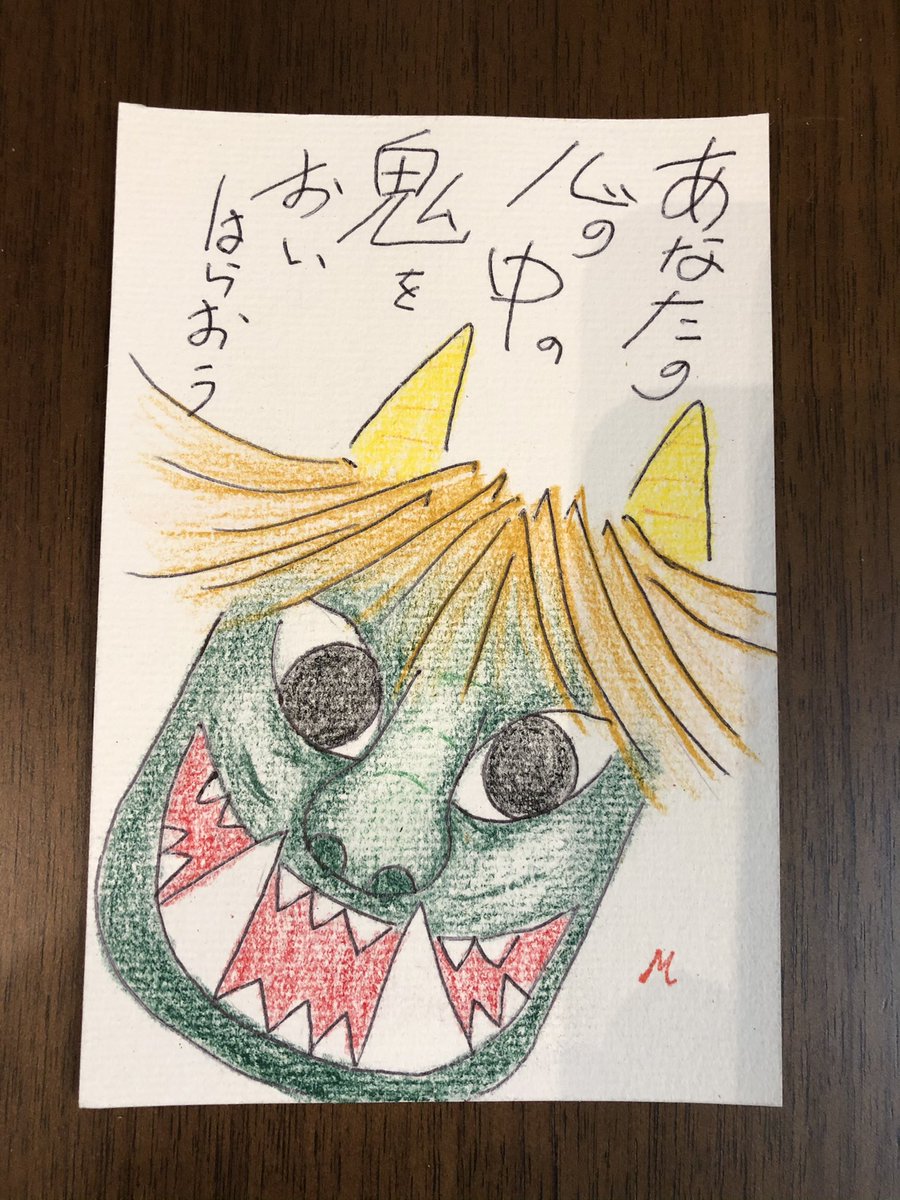 あなたの
心の
中の
鬼を
おい
はらおう
M